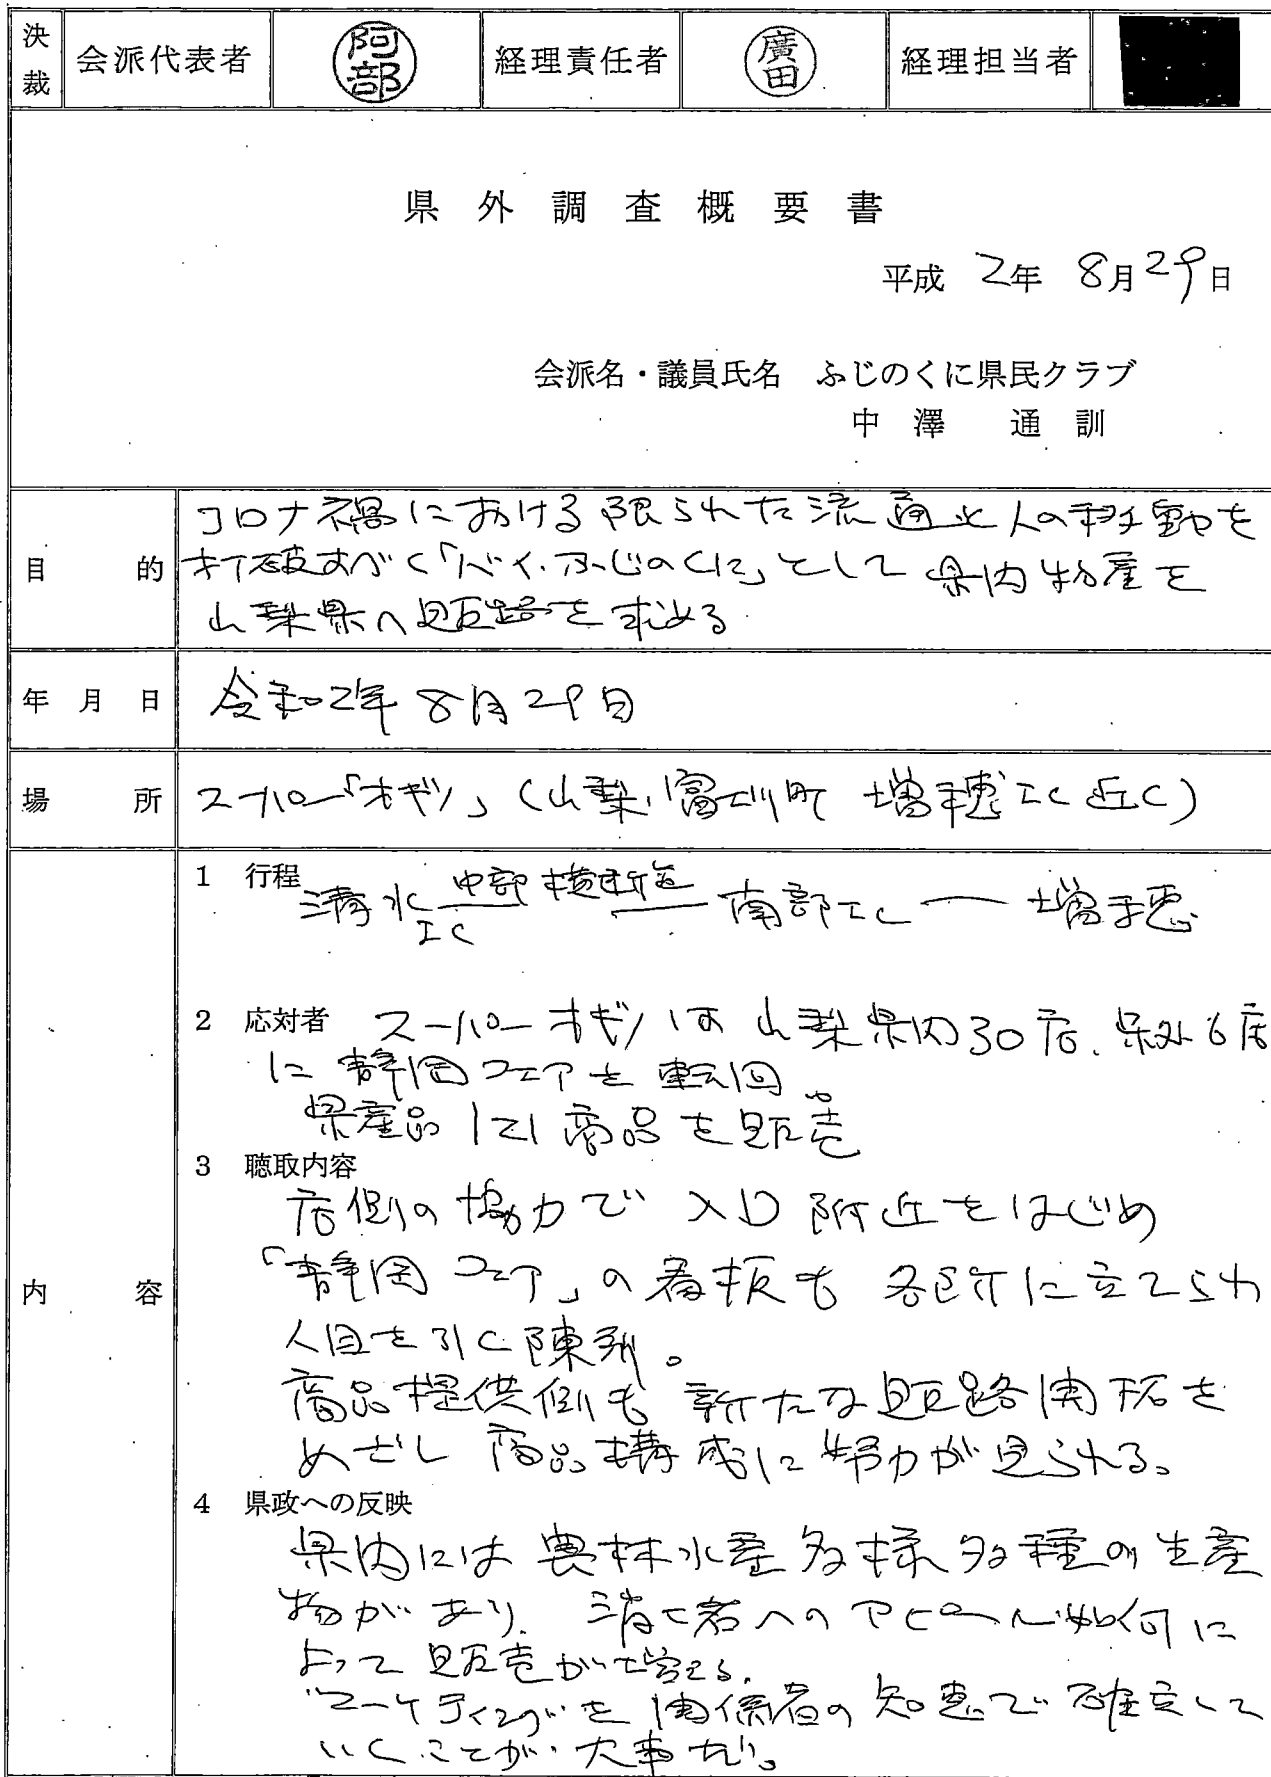 決裁 会派代表者 阿部 経理責任者 廣田 経理担当者
県外調査概要書
平成 2年 8月29日
会派名・議員氏名 ふじのくに県民クラブ
中澤 通訓
目的 コロナ禍における限られた流通と人の移動を
打破すべく「バイ・ふじのくに」として県内物産を
山梨県へ販路を求める
年月日 令和2年8月29日
場所 スーパー「オギノ」(山梨、富士川町 増穂IC近く)
内容
1 行程
清水IC 中部横断道 南部IC ― 増穂
2 応対者 スーパーオギノは山梨県内30店、県外6店
に静岡フェアを転回。
県産品121商品を販売
3 聴取内容
店側の協力で入口附近をはじめ
「静岡フェア」の看板も各所に立てられ
人目を引く陳列。
商品提供側も新たな販路開拓を
めざし商品構成に努力が見られる。
4 県政への反映
県内には農林水産多様多種の生産
物があり、消費者へのアピール如何に
よって販売が増える。
マーケティングを関係者の知恵で確立して
いくことが大事だ。